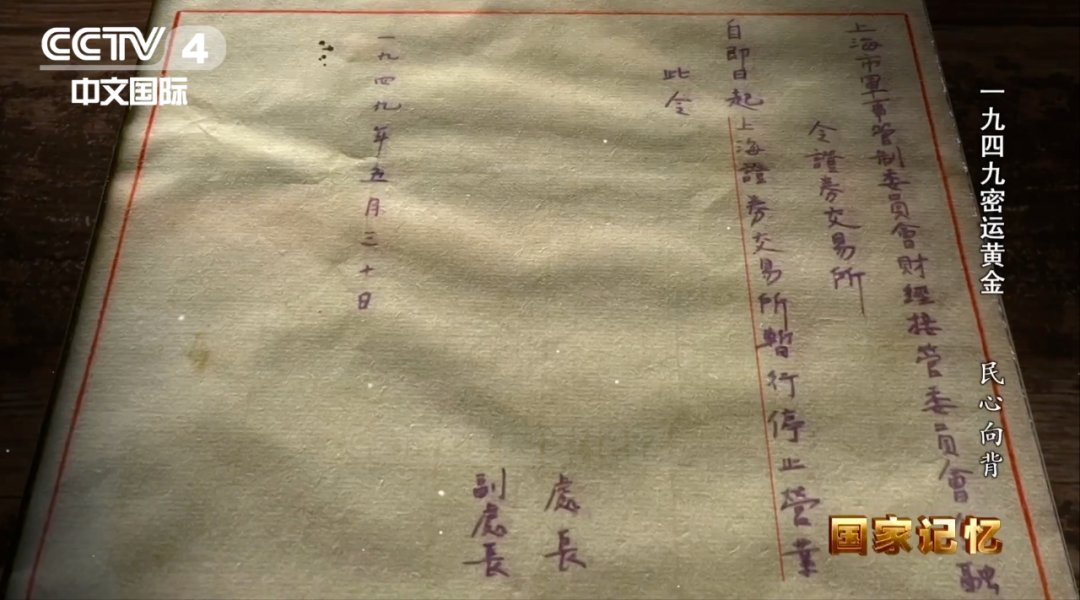 CCTV 4
中文国际
上海市軍事管制委員會財經接管委員會金融
令證券交易所
自即日起上海證券交易所暫行停止營業
此令
處長
副處長
一九四九年五月三十日
一九四九密运黄金 民心向背
国家记忆